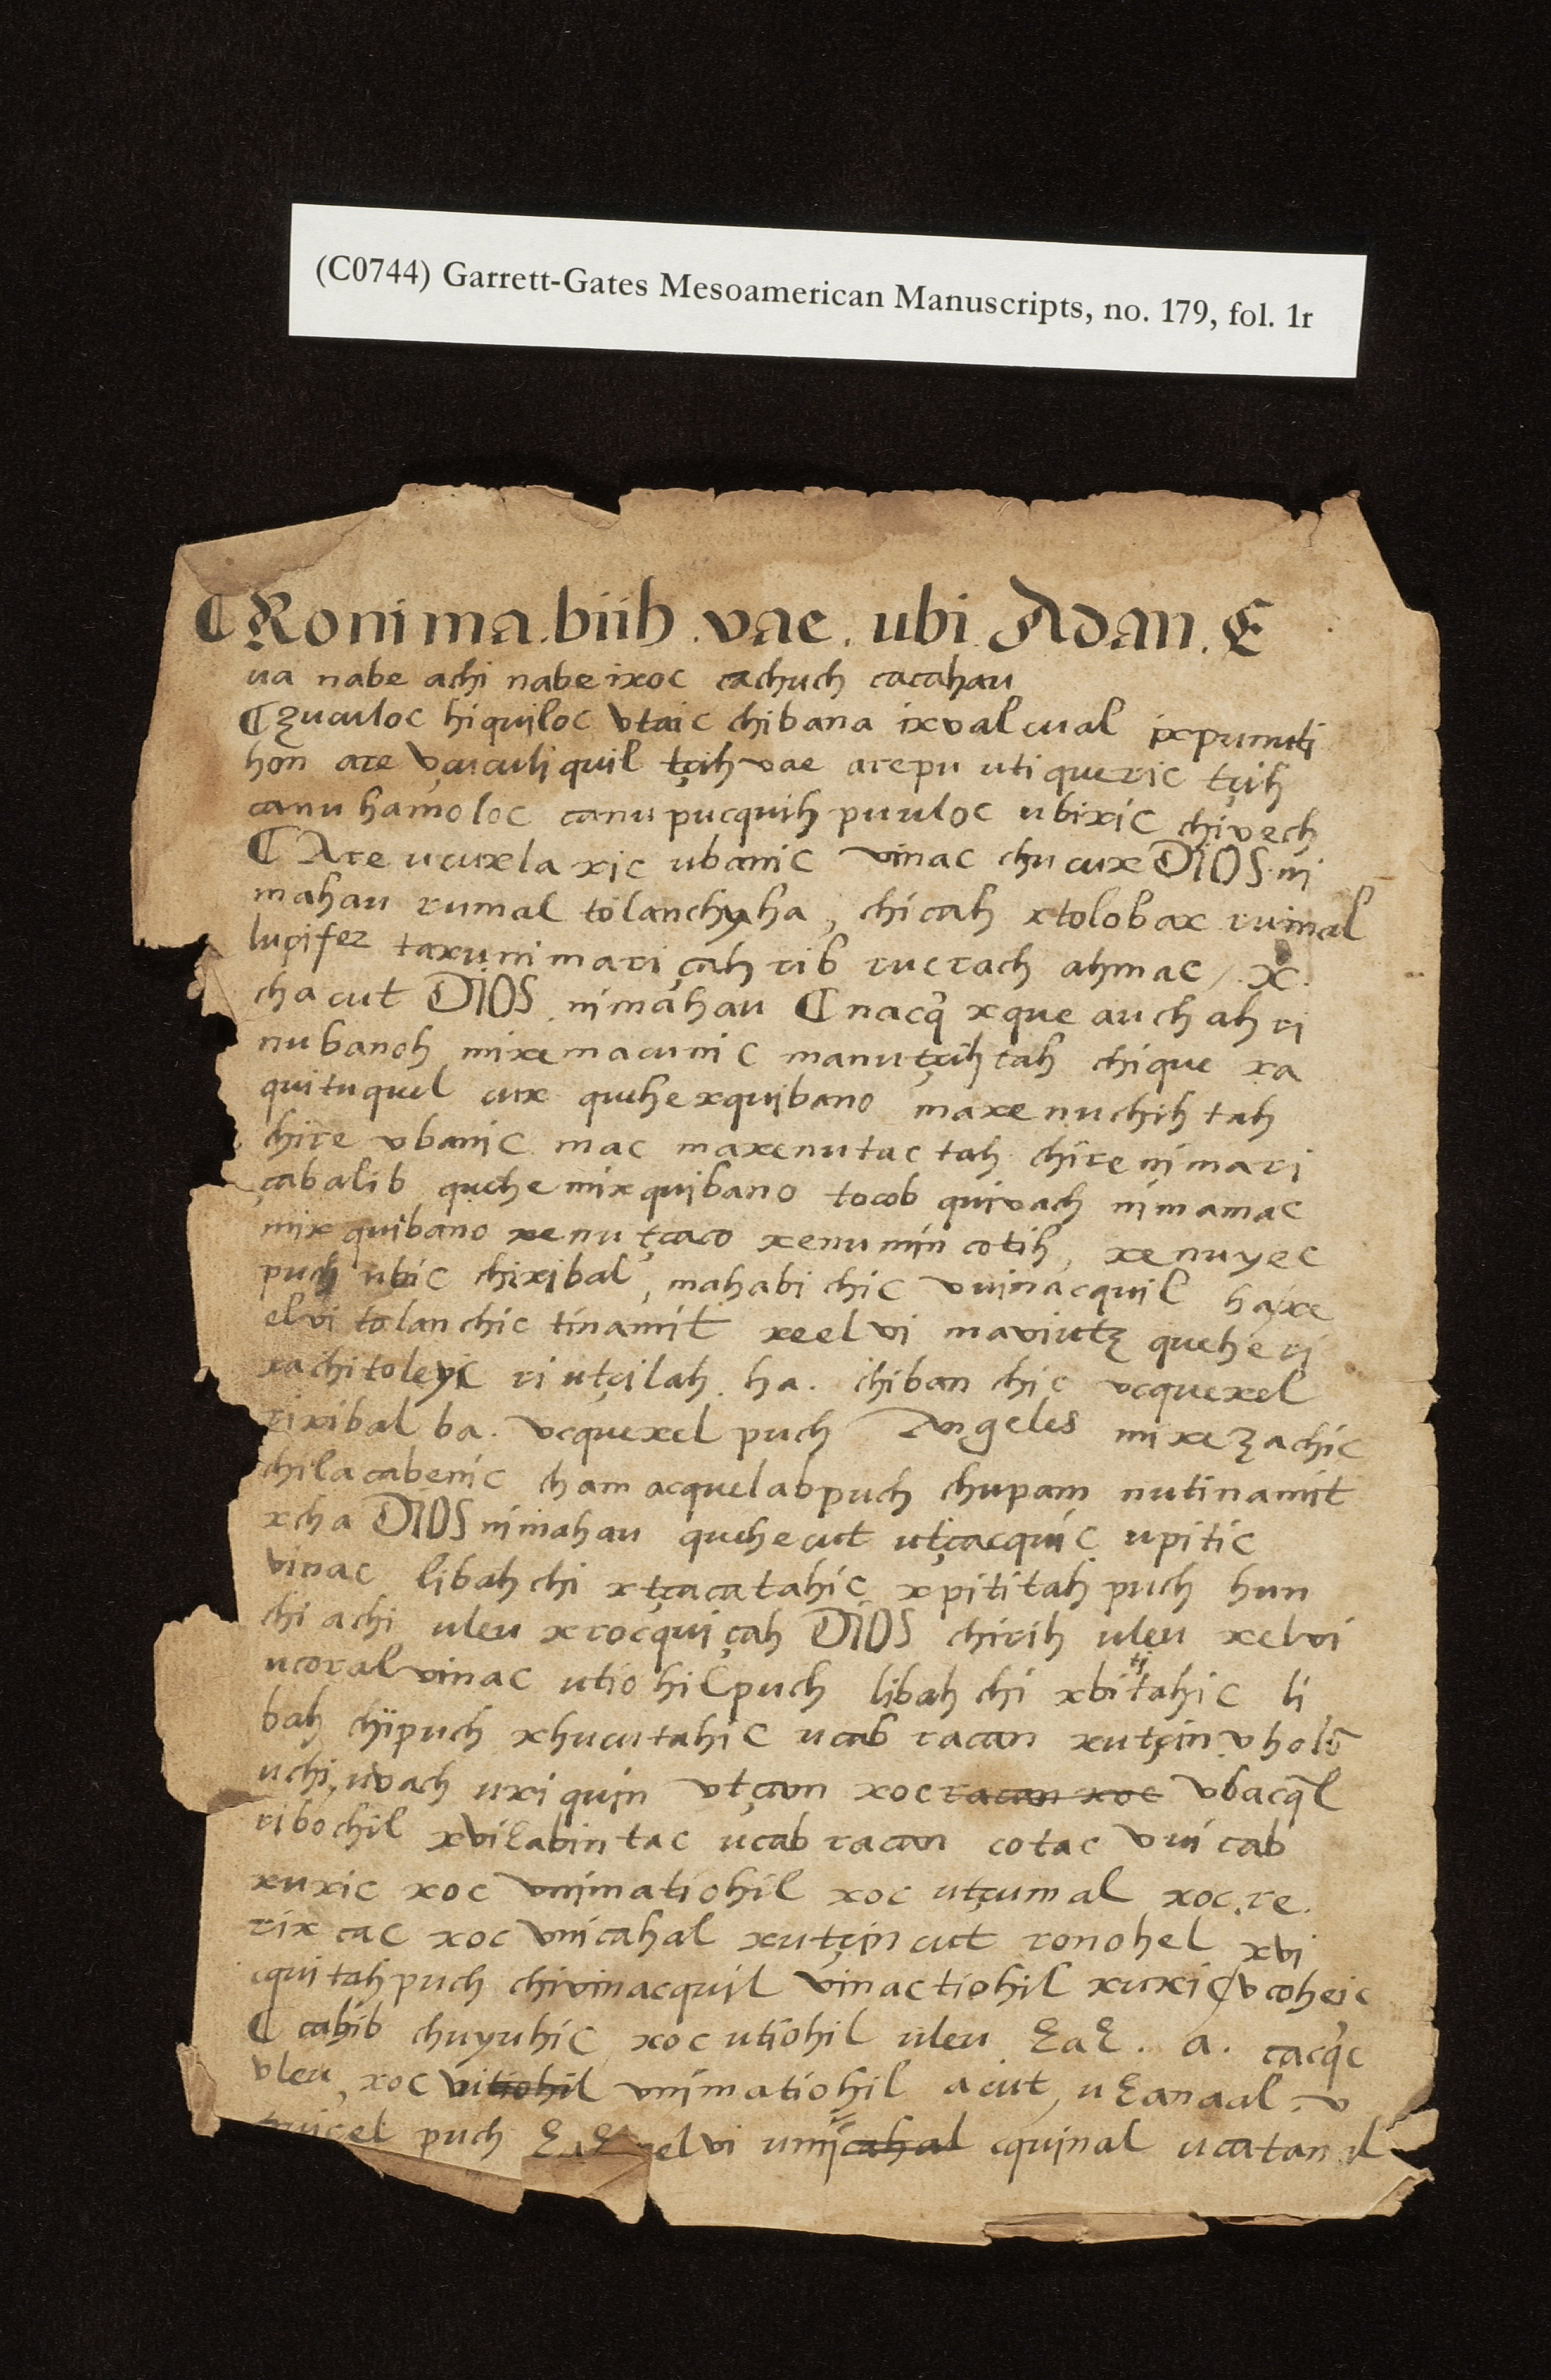 (C0744) Garrett-Gates Mesoamerican Manuscripts, no. 179, fol. 1r
¶ Ronima . biih . vae . ubi . Adan . E
ua nabe achi nabe ixoc cachuch cacahau
¶ ꜫuculoc hiquiloc vtaic chibana ixvalcual ixpumuti
hoñ are vçuculiquil tçih vae arepu utiqueric tçih
canuhamoloc canupucquih puuloc ubixic chivech
¶ Are ucuxlaxic ubanic vinac chucux DIOS ni
mahau rumal tolanchyha, chicah xtolobax rumal
luçifer taxunimariçah rib rucrach ahmac / . x .
chacut DIOS nimahau ¶ nacq̃ xqueauchah ri
nubanoh mixemacunic manutçihtah chique xa
quituquel cux quehexquibano maxenuchih tah
chire vbanic mac maxenutac tah chire nimari
çabalib quehemixquibano tocob quivach nimamac
mixquibano xenutçaco xenumincotih, xenuyec
puch ubic chixibal, mahabi chic vuinacquil haxe
elvi tolanchic tinamit xeelvi maviutꜫ queheri
xachitoleyic ri utçilah . ha . chiban chic vcquexel
rixibal ba . vcquexel puch Angeles mixeꜫachic
chilacabenic chamacquelabpuch chupam nutinamit
xcha DIOS nimahau quehecut utçacquic upitic
vinac libahchi xtçacatahic xpititah puch hun
chi achi uleu xrocquiçah DIOS chirih uleu xelvi
ucoral vinac utiohil puch libah chi xbititahic li
bah chipuch xhucutahic ucab racan xutçin vholõ
uchi, uvach uxiquin vtçam xoc racan xoc vbacq̃l
ribochil xvilabintac ucab racan cotac vuicab
xuxic xoc vnimatiohil xoc utçumal xoc . re .
rixcac xoc vnicahal xutçin cut ronohel xvi
cquitahpuch chivinacquil vinactiohil xuxic vcoheic
¶ cahib chuyuhic xoc utiohil uleu ꜫaꜫ . a . cacq̃c
vleu, xoc uitiohil vnimatiohil acut, uꜫanaal . v
puch elvi unicahal cquinal ucatanil